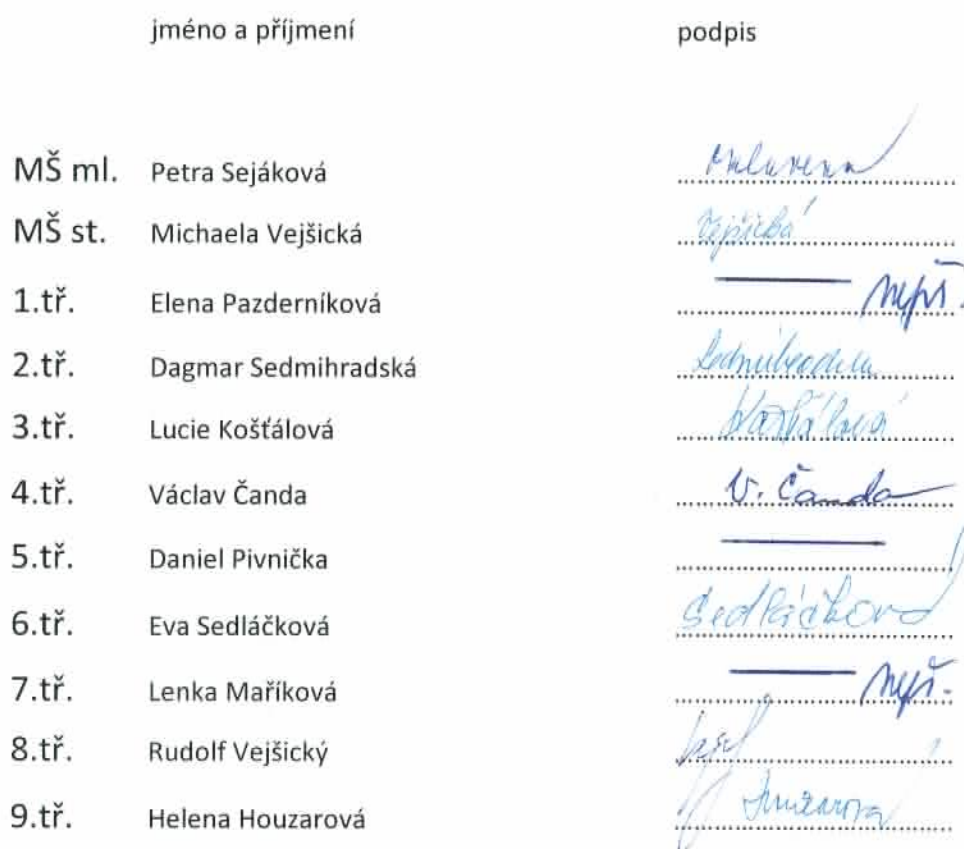 jméno a příjmení podpis
MŠ ml. Petra Sejáková omluvena
MŠ st. Michaela Vejšická Vejšická
1.tř. Elena Pazderníková
2.tř. Dagmar Sedmihradská
3.tř. Lucie Košťálová Košťálová
4.tř. Václav Čanda V. Čanda
5.tř. Daniel Pivnička
6.tř. Eva Sedláčková Sedláčková
7.tř. Lenka Maříková
8.tř. Rudolf Vejšický
9.tř. Helena Houzarová Houzarová